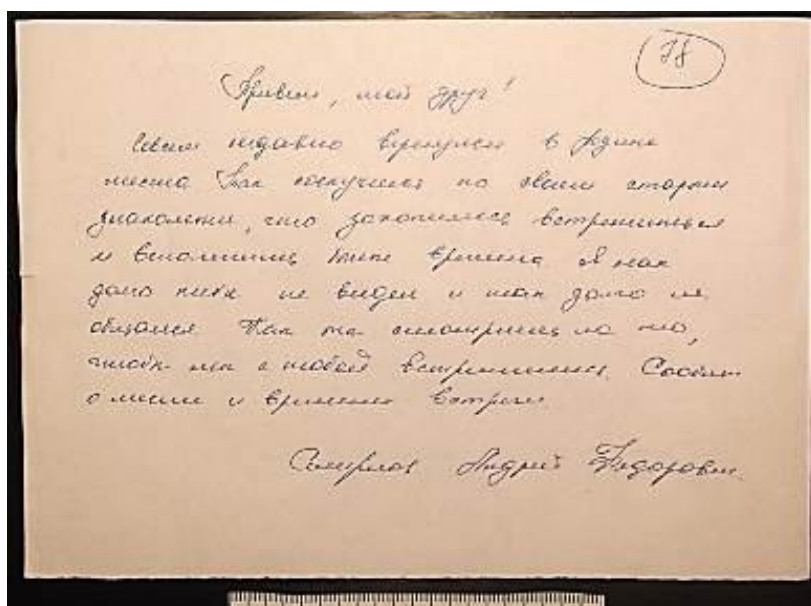 78
Привет, мой друг!
Совсем недавно вернулся в родные
места Так соскучился по своим старым
знакомым, что захотелось встретиться
и вспомнить былые времена Я так
долго тебя не видел и так долго не
общался Так ты смотришь на то,
чтобы мы с тобой встретились. Сообщи
о месте и времени встречи.
Смирнов Андрей Федорович